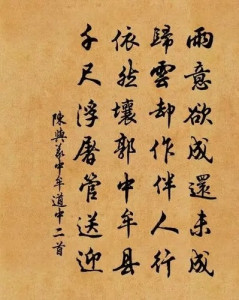 雨意欲成還未成
歸雲却作伴人行
依然壞郭中牟縣
千尺浮屠管送迎
陳與義中牟道中二首